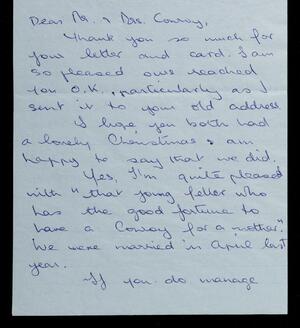 Dear Mr. & Mrs. Conroy,
Thank you so much for
your letter and card. I am
so pleased ours reached
you O.K., particularly as I
sent it to your old address.
I hope you both had
a lovely Christmas & am
happy to say that we did.
Yes, I'm quite pleased
with "that young feller who
has the good fortune to
have a Conroy for a mother".
We were married in April last
year.
If you do manage